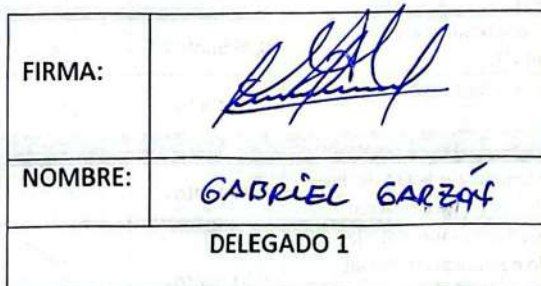 FIRMA:
NOMBRE: GABRIEL GARZÓN
DELEGADO 1